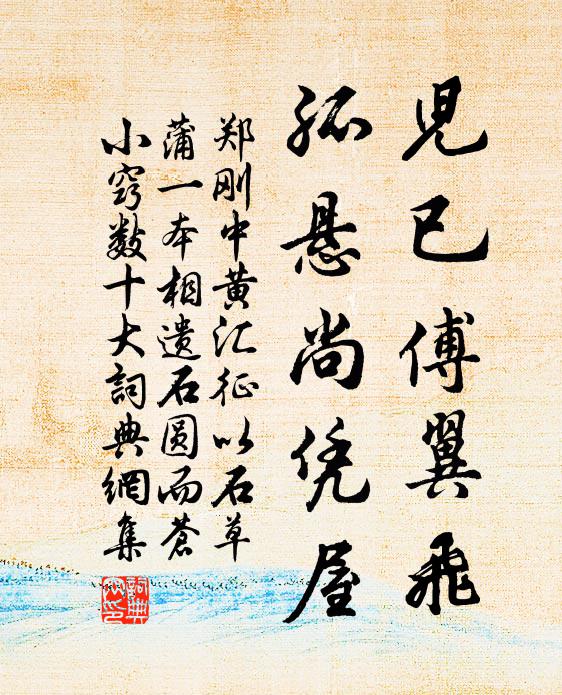 児已傅翼飛
孤悬尚凭屋
郑刚中黄汇征以石草
蒲一本相遗石圆而苍
小窍数十大詞典網集